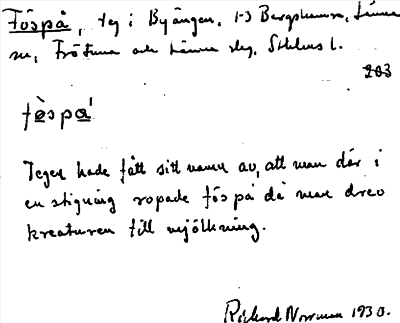 Föspå, teg i Byängen, 1-3 Bergshamra, Länna
sn, Frötuna och Länna slg, Sthlms l.
203
fö̀spá
Tegen hade fått sitt namn av, att man där i
en stigning ropade fös på då man drev
kreaturen till mjölkning.
Rickard Norrman 1930.